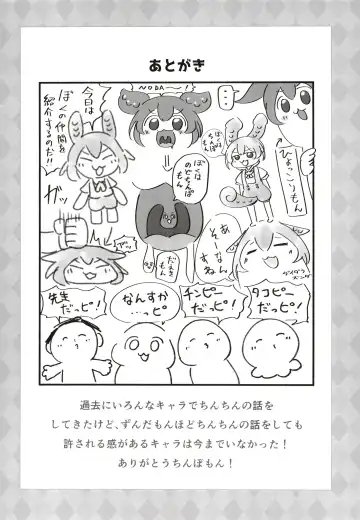 あとがき
今日は
ぼくの仲間を
紹介するのだ!!
NODA〜!
ぼくは
のどちんぽ
もん
ひょっこりもん
ガッ
あ
そーなん
すね
先生
だっピ!
なんすか
…っピ
チンピー
だっピ!
タコピー
だっピ!
過去にいろんなキャラでちんちんの話を
してきたけど、ずんだもんほどちんちんの話をしても
許される感があるキャラは今までいなかった!
ありがとうちんぽもん!